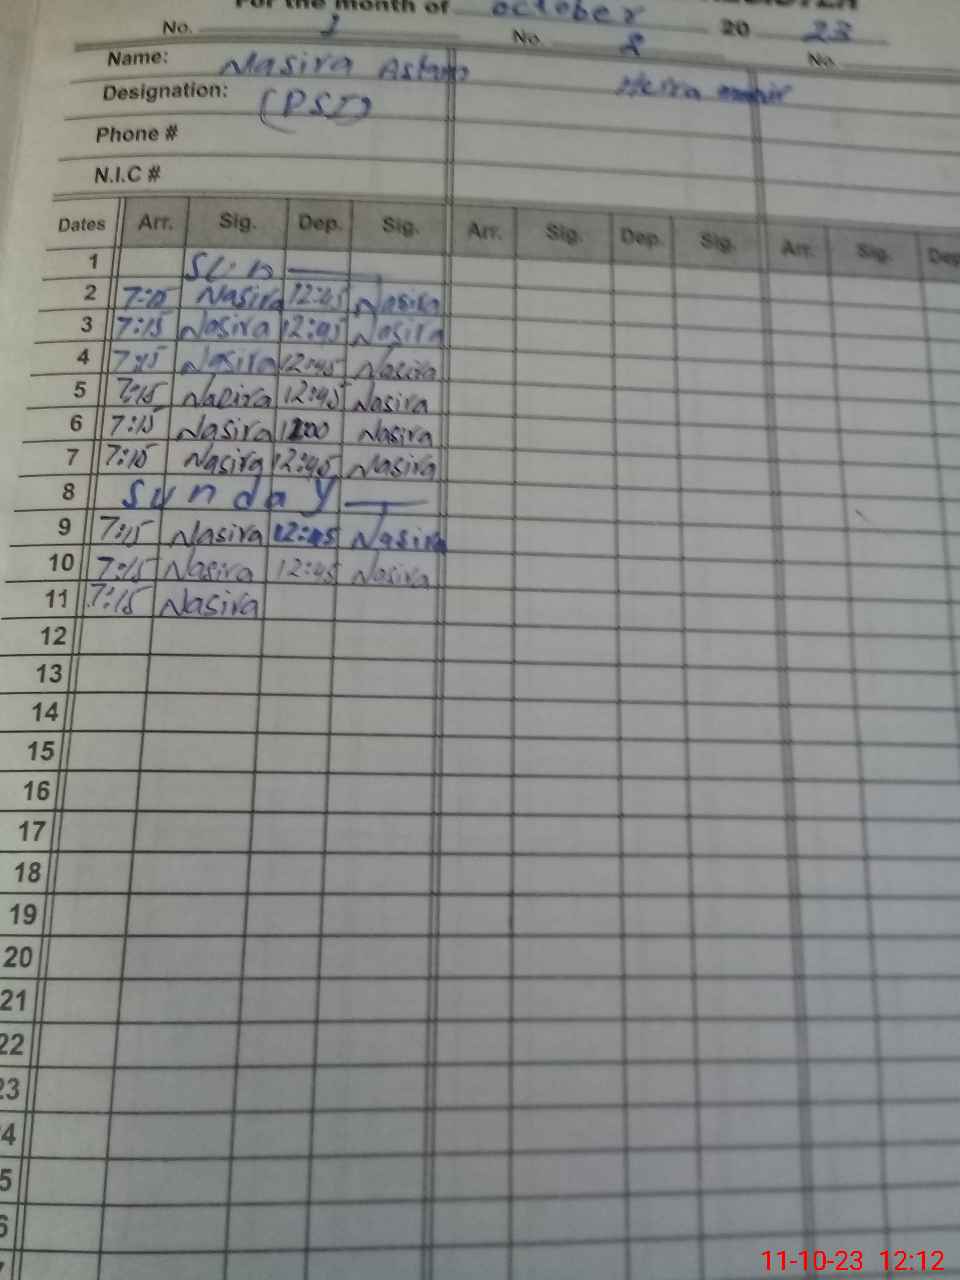 For the month of October 20 23
No. 1 No. 2 No.
Name: Nasira
Designation: (PST)
Phone #
N.I.C #
Dates Arr. Sig. Dep. Sig. Arr. Sig. Dep. Sig. Arr. Sig. Dep
1 Sun
2 7:15 Nasira 12:45 Nasira
3 7:15 Nasira 12:45 Nasira
4 7:15 Nasira 12:45 Nasira
5 7:15 Nasira 12:45 Nasira
6 7:15 Nasira Nasira
7 7:15 Nasira 12:45 Nasira
8 Sunday
9 7:15 Nasira 12:45 Nasira
10 7:15 Nasira 12:45 Nasira
11 7:15 Nasira
12
13
14
15
16
17
18
19
20
21
22
23
4
5
6
11-10-23 12:12